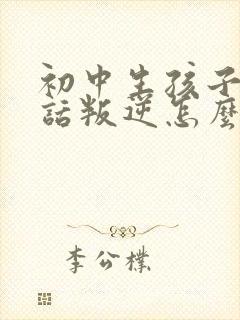 初中生孩子
話叛逆怎麼
李公樸